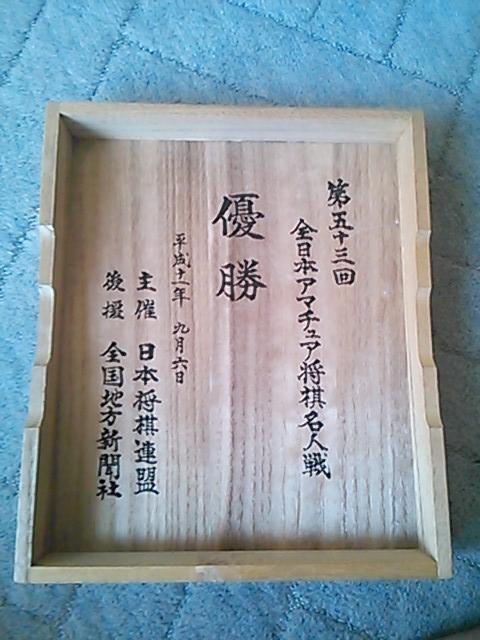 第五十三回
全日本アマチュア将棋名人戦
優勝
平成十一年 九月六日
主催 日本将棋連盟
後援 全国地方新聞社